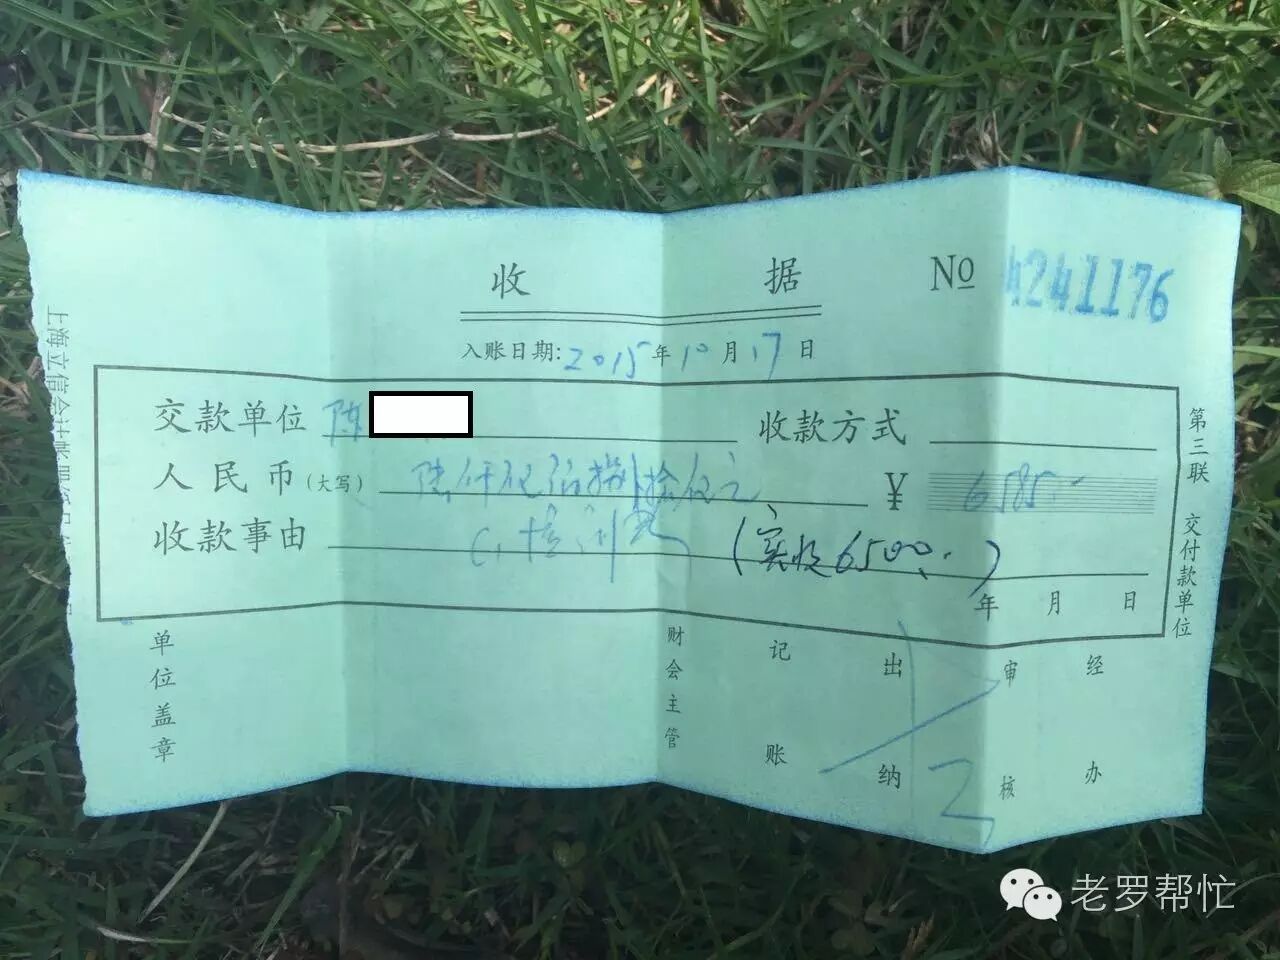 收 据 № 4241176
入账日期: 2015年10月17日
交款单位 陈 收款方式
人民币(大写) 陆仟伍佰捌拾伍元 ¥ 6585.-
收款事由 (实收6500.-)
年 月 日
单位盖章 财会主管 记账 出纳 审核 经办
第三联 交付款单位
上海立信会计帐册
老罗帮忙